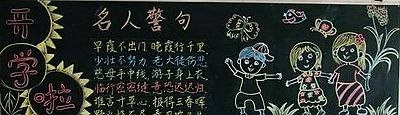 开
学
啦
名人警句
早霞不出门 晚霞行千里
少壮不努力 老大徒伤悲
慈母手中线 游子身上衣
临行密密缝 意恐迟迟归
谁言寸草心 报得三春晖